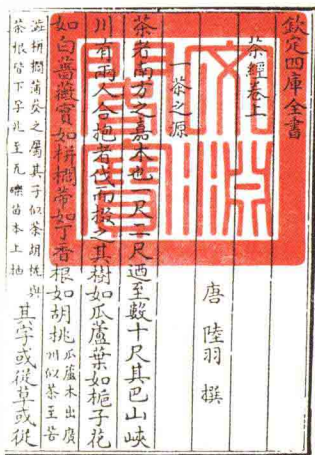 欽定四庫全書
茶經卷上
唐 陸羽 撰
一茶之源
茶者南方之嘉木也一尺二尺迺至數十尺其巴山峽
川有兩人合抱者伐而掇之其樹如瓜蘆葉如梔子花
如白薔薇實如栟櫚蔕如丁香根如胡桃
瓜蘆木出廣
川似茶至苦
澁栟櫚蒲葵之屬其子似茶胡桃與
茶根皆下孕兆至瓦礫苗木上抽
其字或從草或從
文淵
閣寶